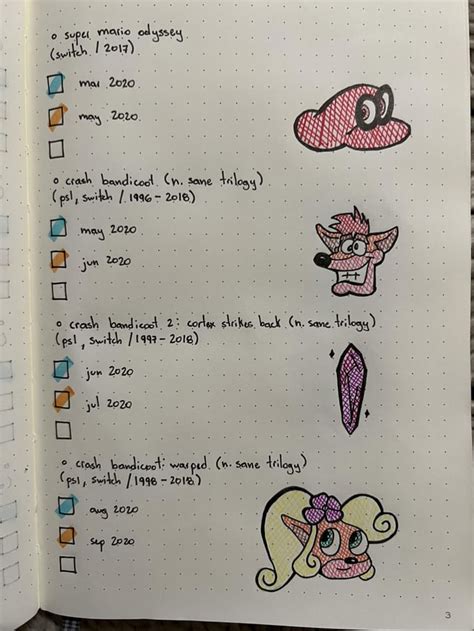 o super mario odyssey
(switch / 2017)
mar 2020
may 2020
o crash bandicoot (n. sane trilogy)
(ps1, switch / 1996 - 2018)
may 2020
jun 2020
o crash bandicoot 2: cortex strikes back (n. sane trilogy)
(ps1, switch / 1997 - 2018)
jun 2020
jul 2020
o crash bandicoot: warped (n. sane trilogy)
(ps1, switch / 1998 - 2018)
aug 2020
sep 2020
3